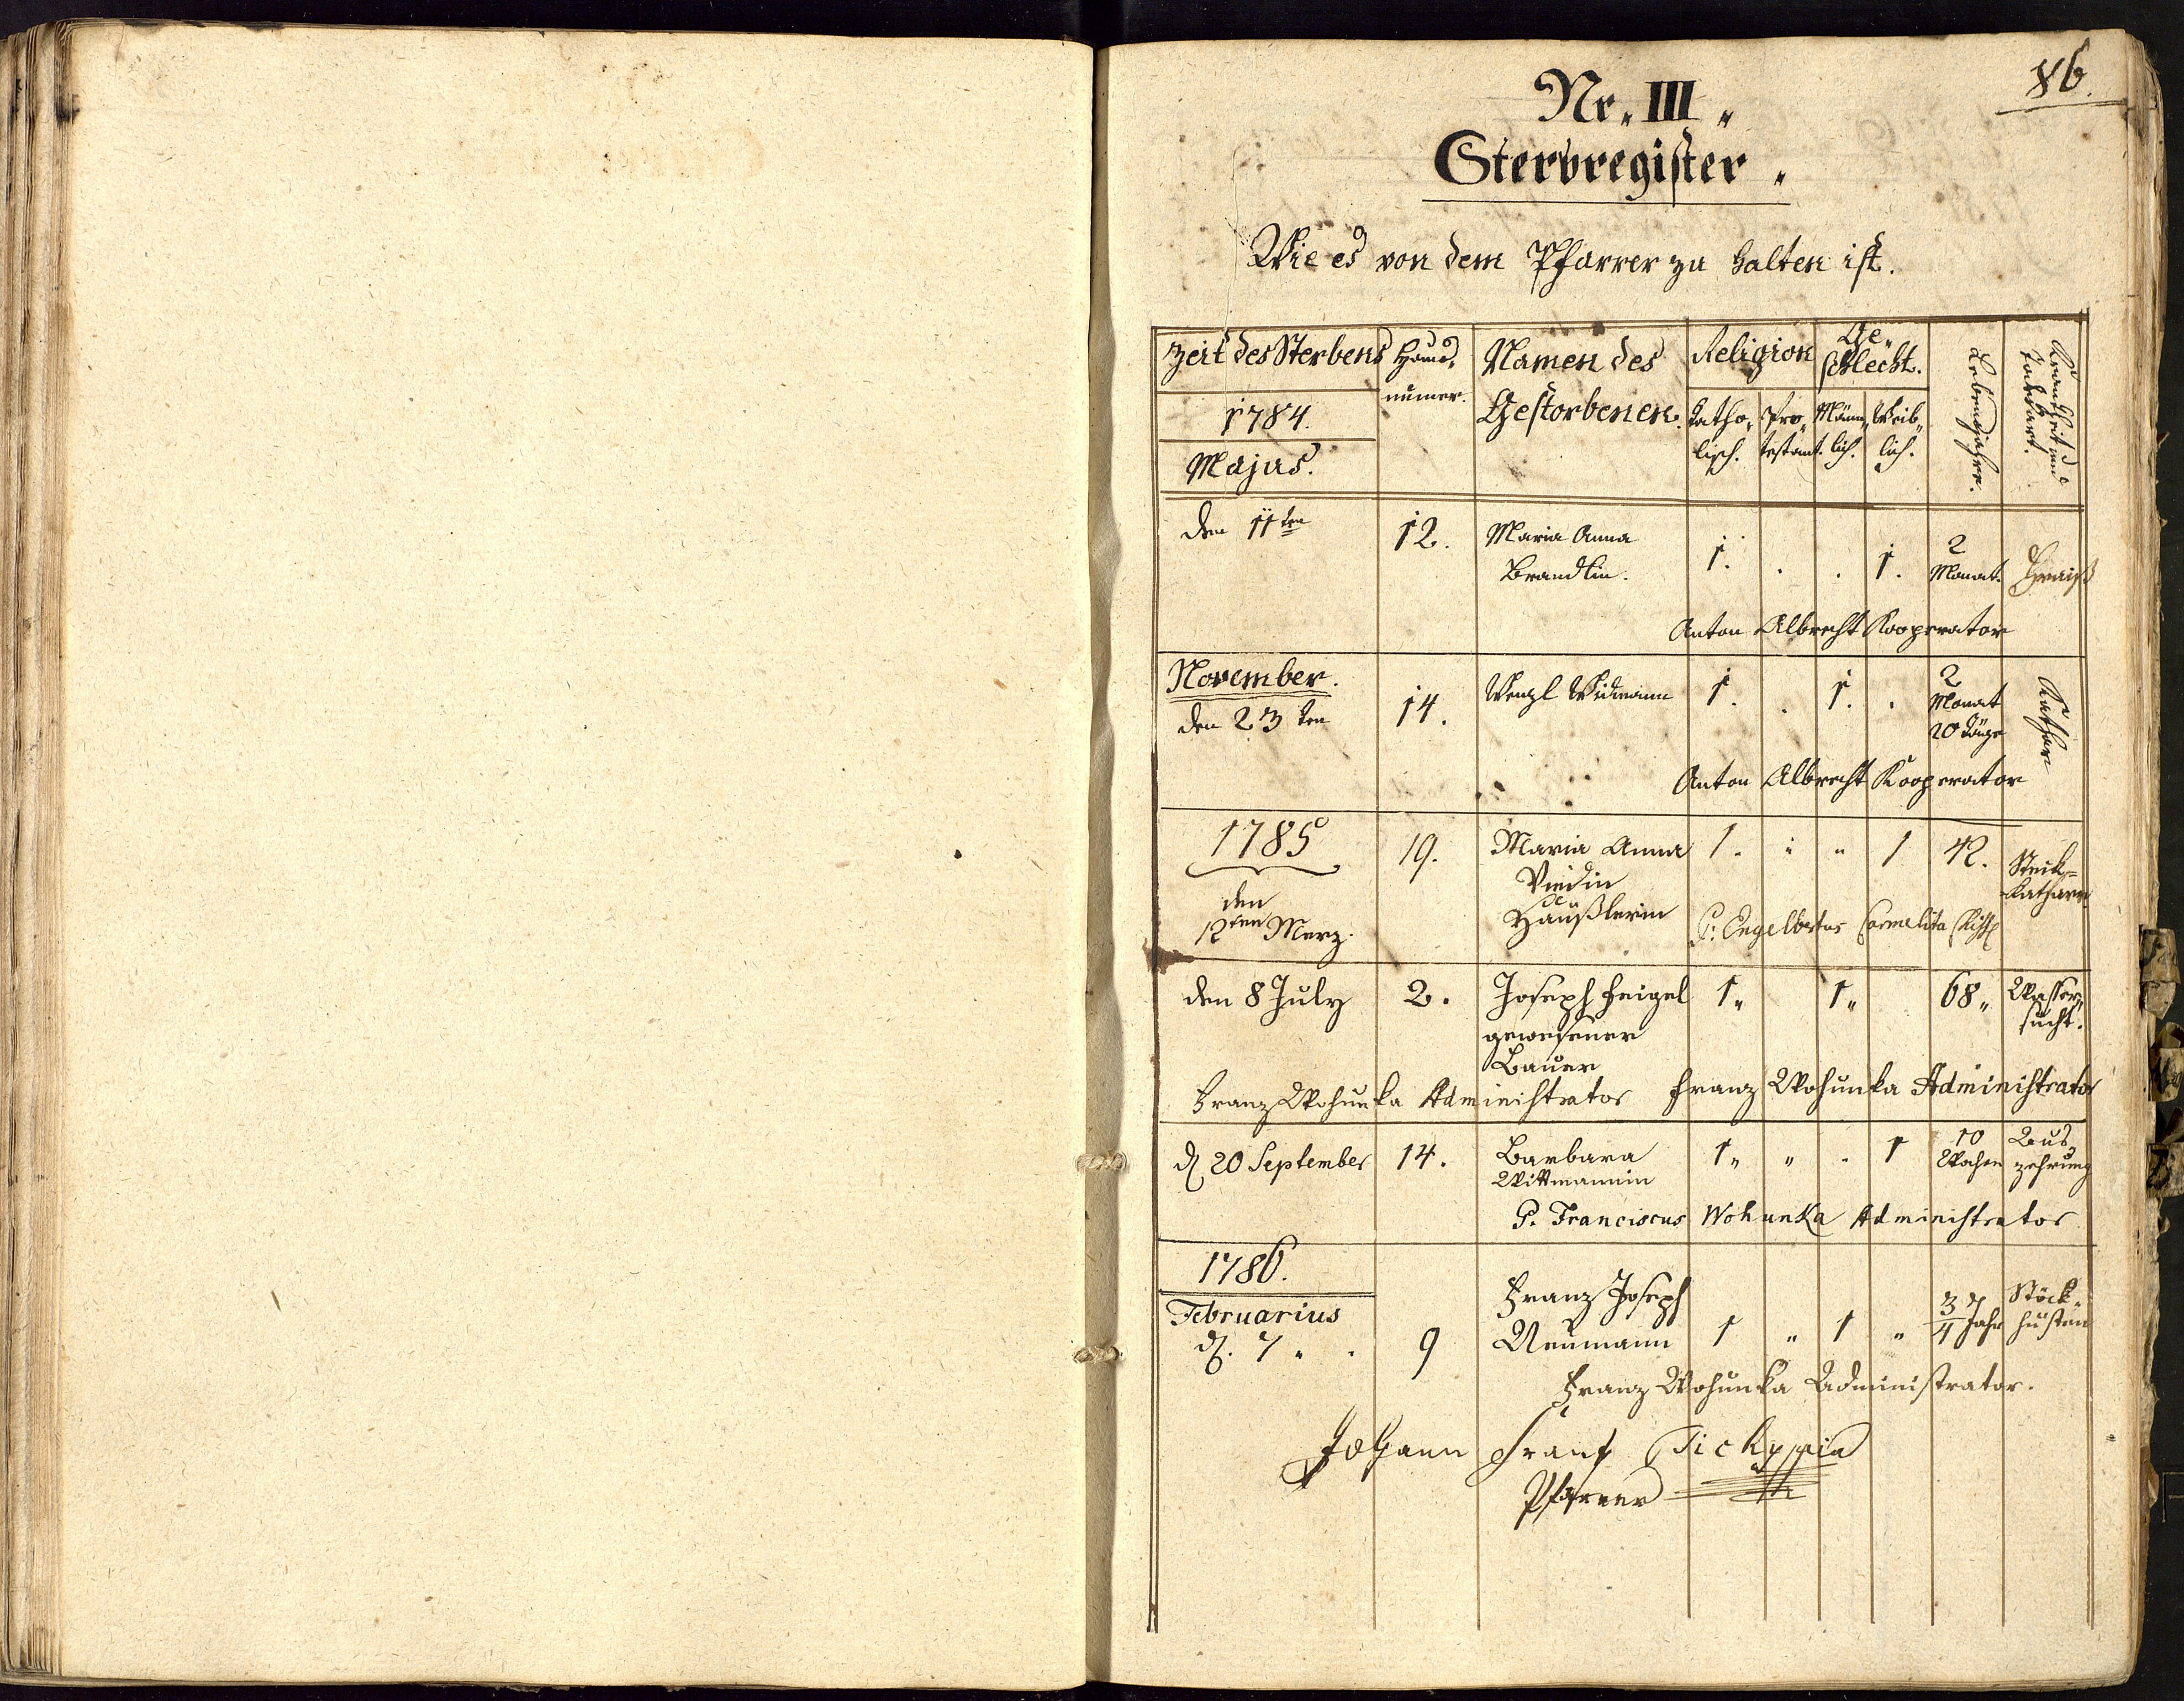 86.
Nr. III.
Sterbregister.
Wie es von dem Pfarrer zu halten ist.
Zeit des Sterbens
1784.
Majus.
Haus-
numer.
Namen des
Gestorbenen.
Religion
Katho-
lisch.
Pro-
testant.
Ge-
schlecht.
Männ-
lich.
Weib-
lich.
Lebensjahre.
Krankheit und
Todtart.
den 11ten
12.
Maria Anna
Brandlin.
1. . . 1.
2
Monat.
Fraiß
Anton Albrecht Kooperator
November.
den 23ten
14.
Wenzl Widmann
1. . 1. .
2
Monat
20 Täge
Kathar
Anton Albrecht Kooperator
1785
den
12ten Merz.
19.
Maria Anna
Häußlerin
1. " " 1
42.
Steck-
katharr
P. Engelbertus Carmelita
den 8 July
2.
Joseph Feigel
gewesener
Bauer
1" 1"
68"
Wasser-
sucht.
Franz Wohunka Administrator Franz Wohunka Administrator
d. 20 September
14.
Barbara
Wittmannin
1" " . 1
10
Wochen
Aus-
zehrung
P. Franciscus Wohunka Administrator
1786.
Februarius
d. 7 " .
9
Franz Joseph
Neumann
1 " 1 "
3/4 Jahr
Stöck-
husten
Franz Wohunka Administrator.
Johann Franz
Pfarrer